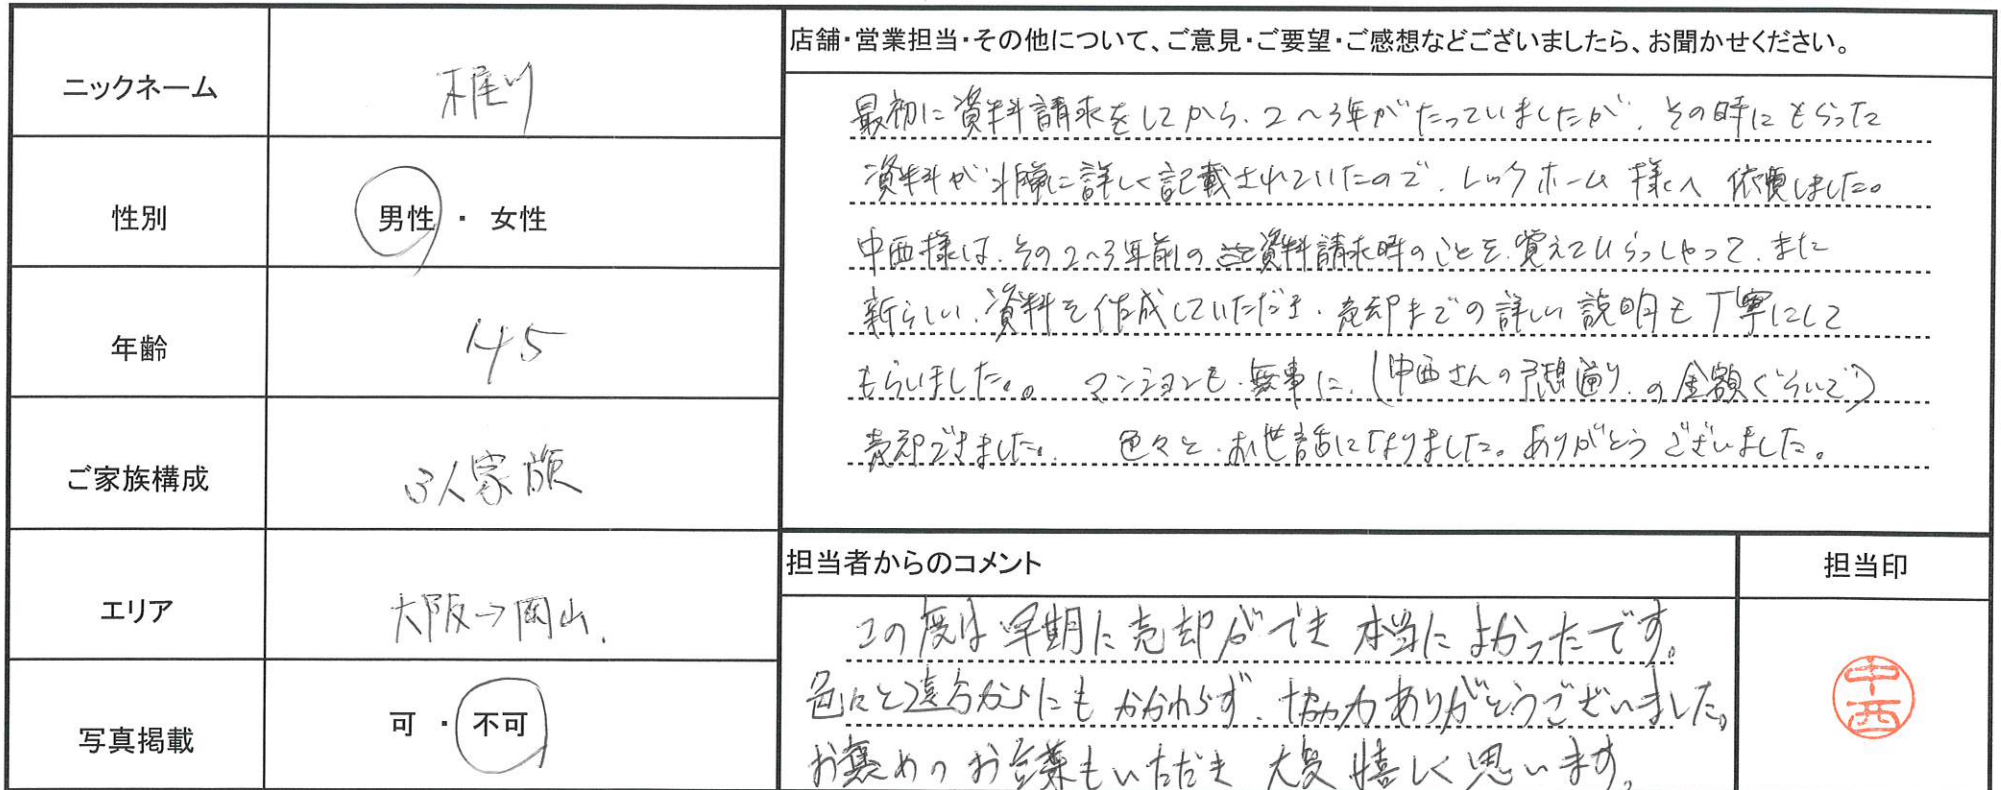 ニックネーム
梶川
性別
男性 ・ 女性
年齢
45
ご家族構成
3人家族
エリア
大阪→岡山.
写真掲載
可 ・ 不可
店舗・営業担当・その他について、ご意見・ご要望・ご感想などございましたら、お聞かせください。
最初に資料請求をしてから、2〜3年がたっていましたが、その時にもらった
資料が非常に詳しく記載されていたので、レックホーム様へ依頼しました。
中西様は、その2〜3年前の資料請求時のことを、覚えていらっしゃって、また
新らしい、資料を作成していただき、売却までの詳しい説明も丁寧にして
もらいました。 マンションも、無事に、(中西さんの予想通り、の金額ぐらいで)
売却できました。 色々と、お世話になりました。ありがとうございました。
担当者からのコメント
担当印
この度は早期に売却ができ本当によかったです。
色々と遠方にもかかわらず、協力ありがとうございました。
お褒めのお言葉もいただき大変嬉しく思います。
中西